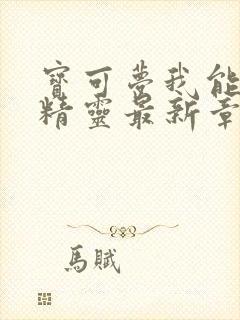 寶可夢我能
精靈最新章
馬賦